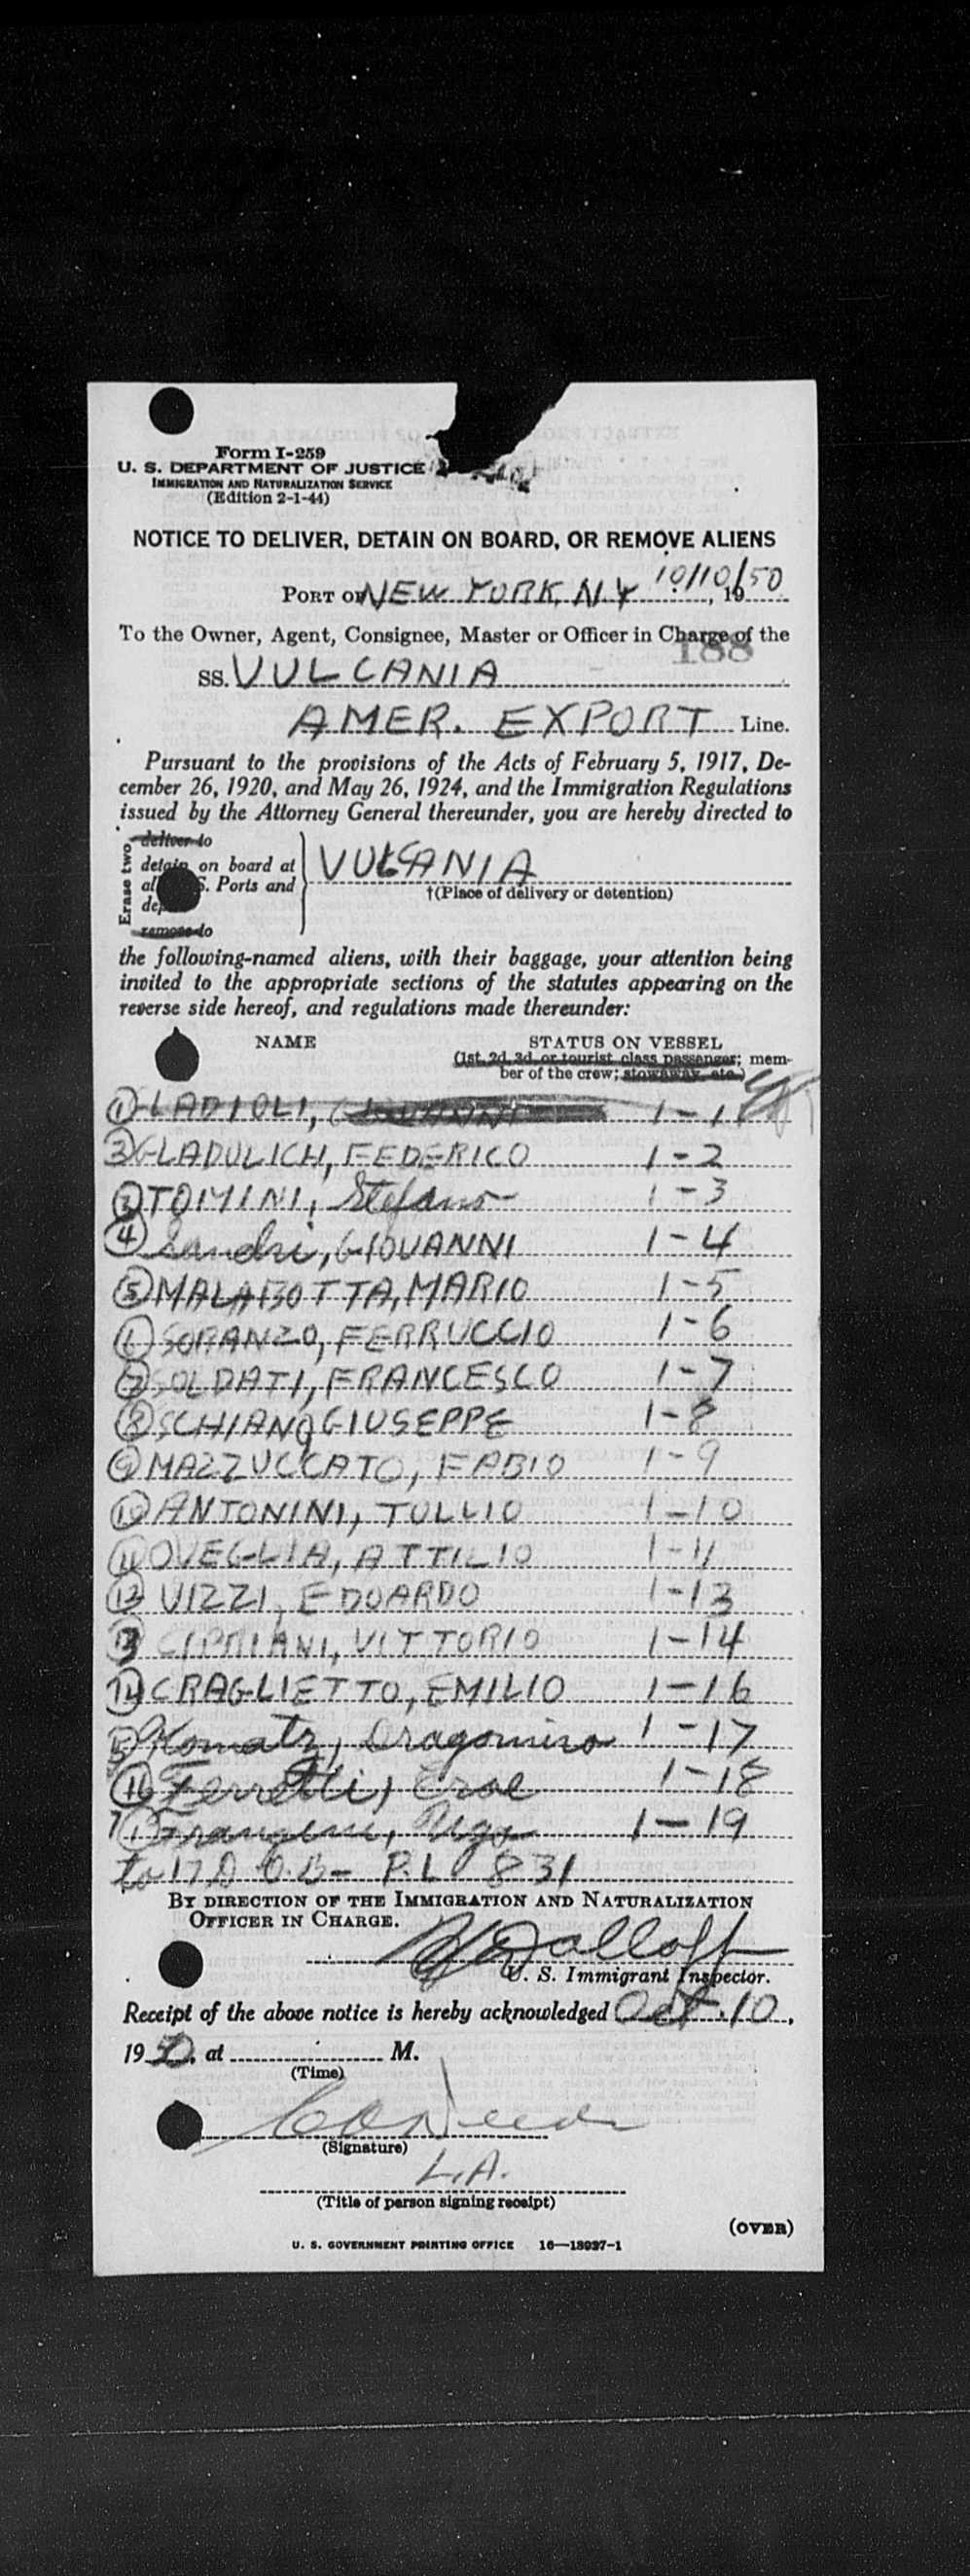 Form I-259
U. S. DEPARTMENT OF JUSTICE
IMMIGRATION AND NATURALIZATION SERVICE
(Edition 2-1-44)
NOTICE TO DELIVER, DETAIN ON BOARD, OR REMOVE ALIENS
PORT OF NEW YORK, N.Y 10/10/50, 19
To the Owner, Agent, Consignee, Master or Officer in Charge of the
188
SS. VULCANIA
AMER. EXPORT Line.
Pursuant to the provisions of the Acts of February 5, 1917, De-
cember 26, 1920, and May 26, 1924, and the Immigration Regulations
issued by the Attorney General thereunder, you are hereby directed to
Erase two
deliver to
detain on board at VULCANIA
S. Ports and
†(Place of delivery or detention)
remove to
the following-named aliens, with their baggage, your attention being
invited to the appropriate sections of the statutes appearing on the
reverse side hereof, and regulations made thereunder:
NAME STATUS ON VESSEL
(1st, 2d, 3d, or tourist class passenger; mem-
ber of the crew; stowaway, etc.)
1 LADIOLI, 1-1
GLADULICH, FEDERICO 1-2
3 TOMINI, Stefano 1-3
4 Sandri, GIOVANNI 1-4
5 MALABOTTA, MARIO 1-5
6 SORANZO, FERRUCCIO 1-6
7 SOLDATI, FRANCESCO 1-7
8 SCHIANO, GIUSEPPE 1-8
9 MAZZUCCATO, FABIO 1-9
10 ANTONINI, TULLIO 1-10
11 OVEGLIA, ATTILIO 1-11
12 VIZZI, EDOARDO 1-13
13 CIPRIANI, VITTORIO 1-14
14 CRAGLIETTO, EMILIO 1-16
Komatz, Dragomiro 1-17
16 Ferretti, 1-18
1-19
to 17 D.O.B- P.L 831
BY DIRECTION OF THE IMMIGRATION AND NATURALIZATION
OFFICER IN CHARGE.
U. S. Immigrant Inspector.
Receipt of the above notice is hereby acknowledged Oct. 10,
19 50, at M.
(Time)
(Signature)
L.A.
(Title of person signing receipt)
(OVER)
U. S. GOVERNMENT PRINTING OFFICE 16—18927-1